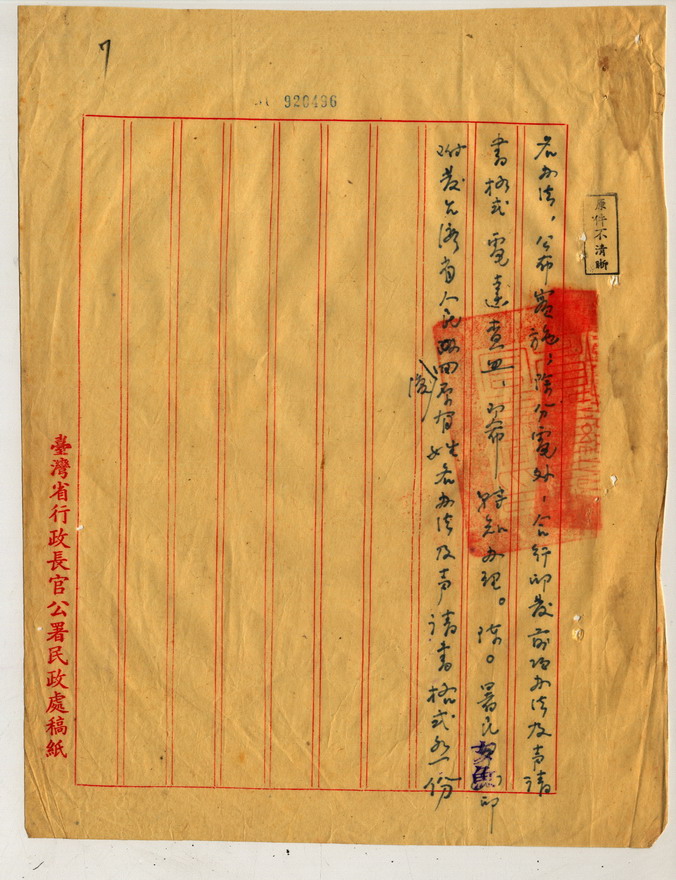 7
920496
原件不清晰
名办法，公布實施，除分電外，合行印發前項办法及声請
書格式電達查照，即希轉知办理。陳。署民印
附發台灣省人民回復原有姓名办法及声請書格式各一份
臺灣省行政長官公署民政處稿紙